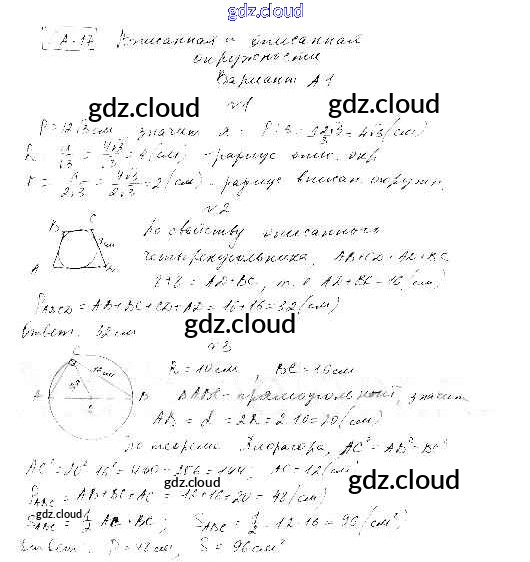 gdz.cloud
А-17 Вписанная и описанная
окружности
Вариант А1
gdz.cloud gdz.cloud
№1
P = 12√3 см, значит a = P : 3 = 12√3/3 = 4√3 (см)
R = a/√3 = 4√3/√3 = 4 (см) - радиус опис. окр.
r = a/2√3 = 4√3/2√3 = 2 (см) - радиус вписан. окружн.
№2
B C
A
По свойству описанного
четырехугольника, AB+CD=AD+BC
gdz.cloud gdz.cloud
= AD+BC, т.е. AD+BC=16 (см)
P ABCD = AB+BC+CD+AD = 16+16=32 (см)
Ответ: 32 см
gdz.cloud
№3
C
A B
R=10 см, BC=16 см
ΔABC - прямоугольный, значит
AB = d = 2R = 2·10=20 (см)
По теореме Пифагора, AC²=AB²-BC²
AC²=20²-16²=400-256=144, AC=12 (см)
gdz.cloud gdz.cloud
P ABC = AB+BC+AC = 12+16+20=48 (см)
S ABC = 1/2 AC·BC; S ABC = 1/2·12·16=96 (см²)
Ответ: P=48 см, S=96 см²
gdz.cloud